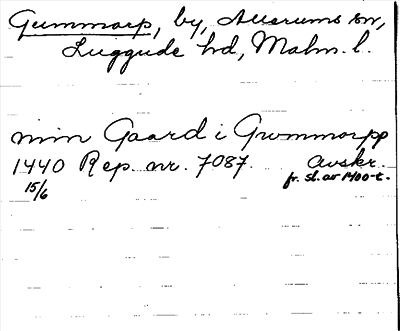 Gummarp, by, Allerums sn,
Luggude hd, Malm. l.
min Gaard i Grwmmarpp
1440 Rep. nr. 7087. Avskr.
15/6 fr. sl. av 1400-t.